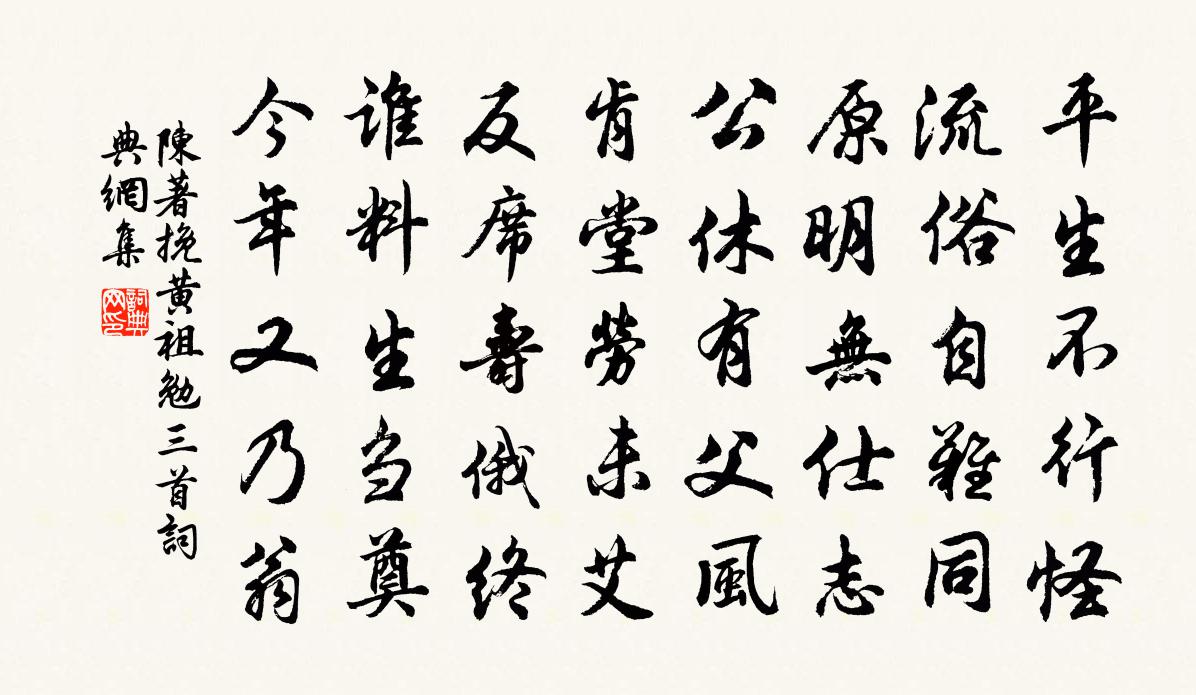 平生不行怪
流俗自難同
原明無仕志
公休有父風
肯堂勞未艾
反席壽俄終
誰料生芻奠
今年又乃翁
陳著挽黄祖勉三首詞
典網集
詞典
网印